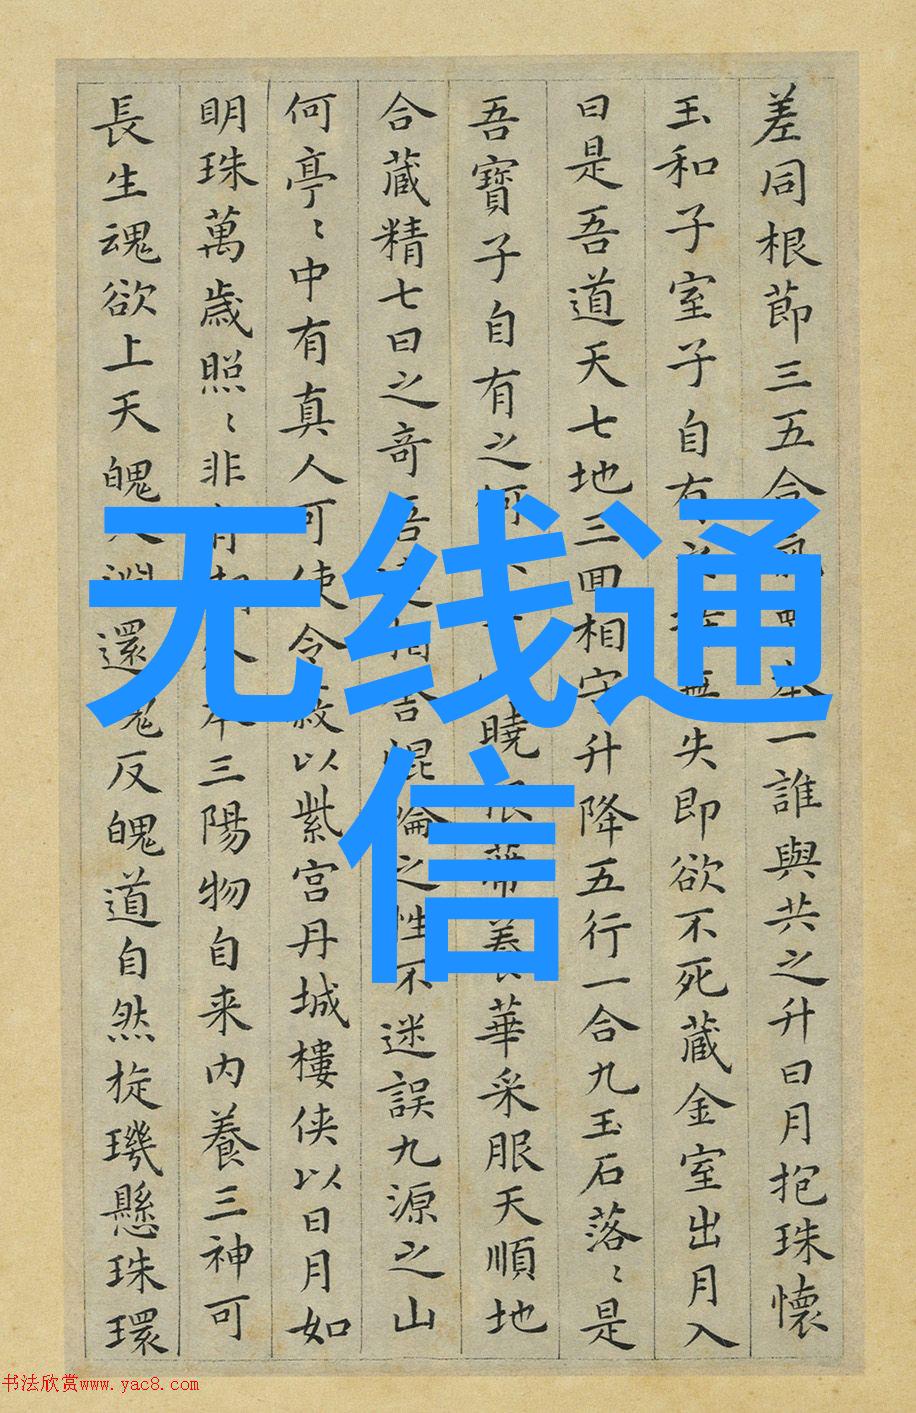 差同根節三五合本一誰與共之升日月抱珠懷
玉和子室子自有無失即欲不死藏金室出月入
日是吾道天七地三回相守升降五行一合九玉石落〻是
吾寶子自有之何曉根蒂養華采服天順地
合藏精七日之奇吾舍崐崘之性不迷誤九源之山
何亭〻中有真人可使令蔽以紫宫丹城樓侠以日月如
明珠萬歲照〻非有本三陽物自来内養三神可
長生魂欲上天魄入淵還魂反魄道自然旋璣懸珠環
无线通
信
书法欣赏www.yac8.com